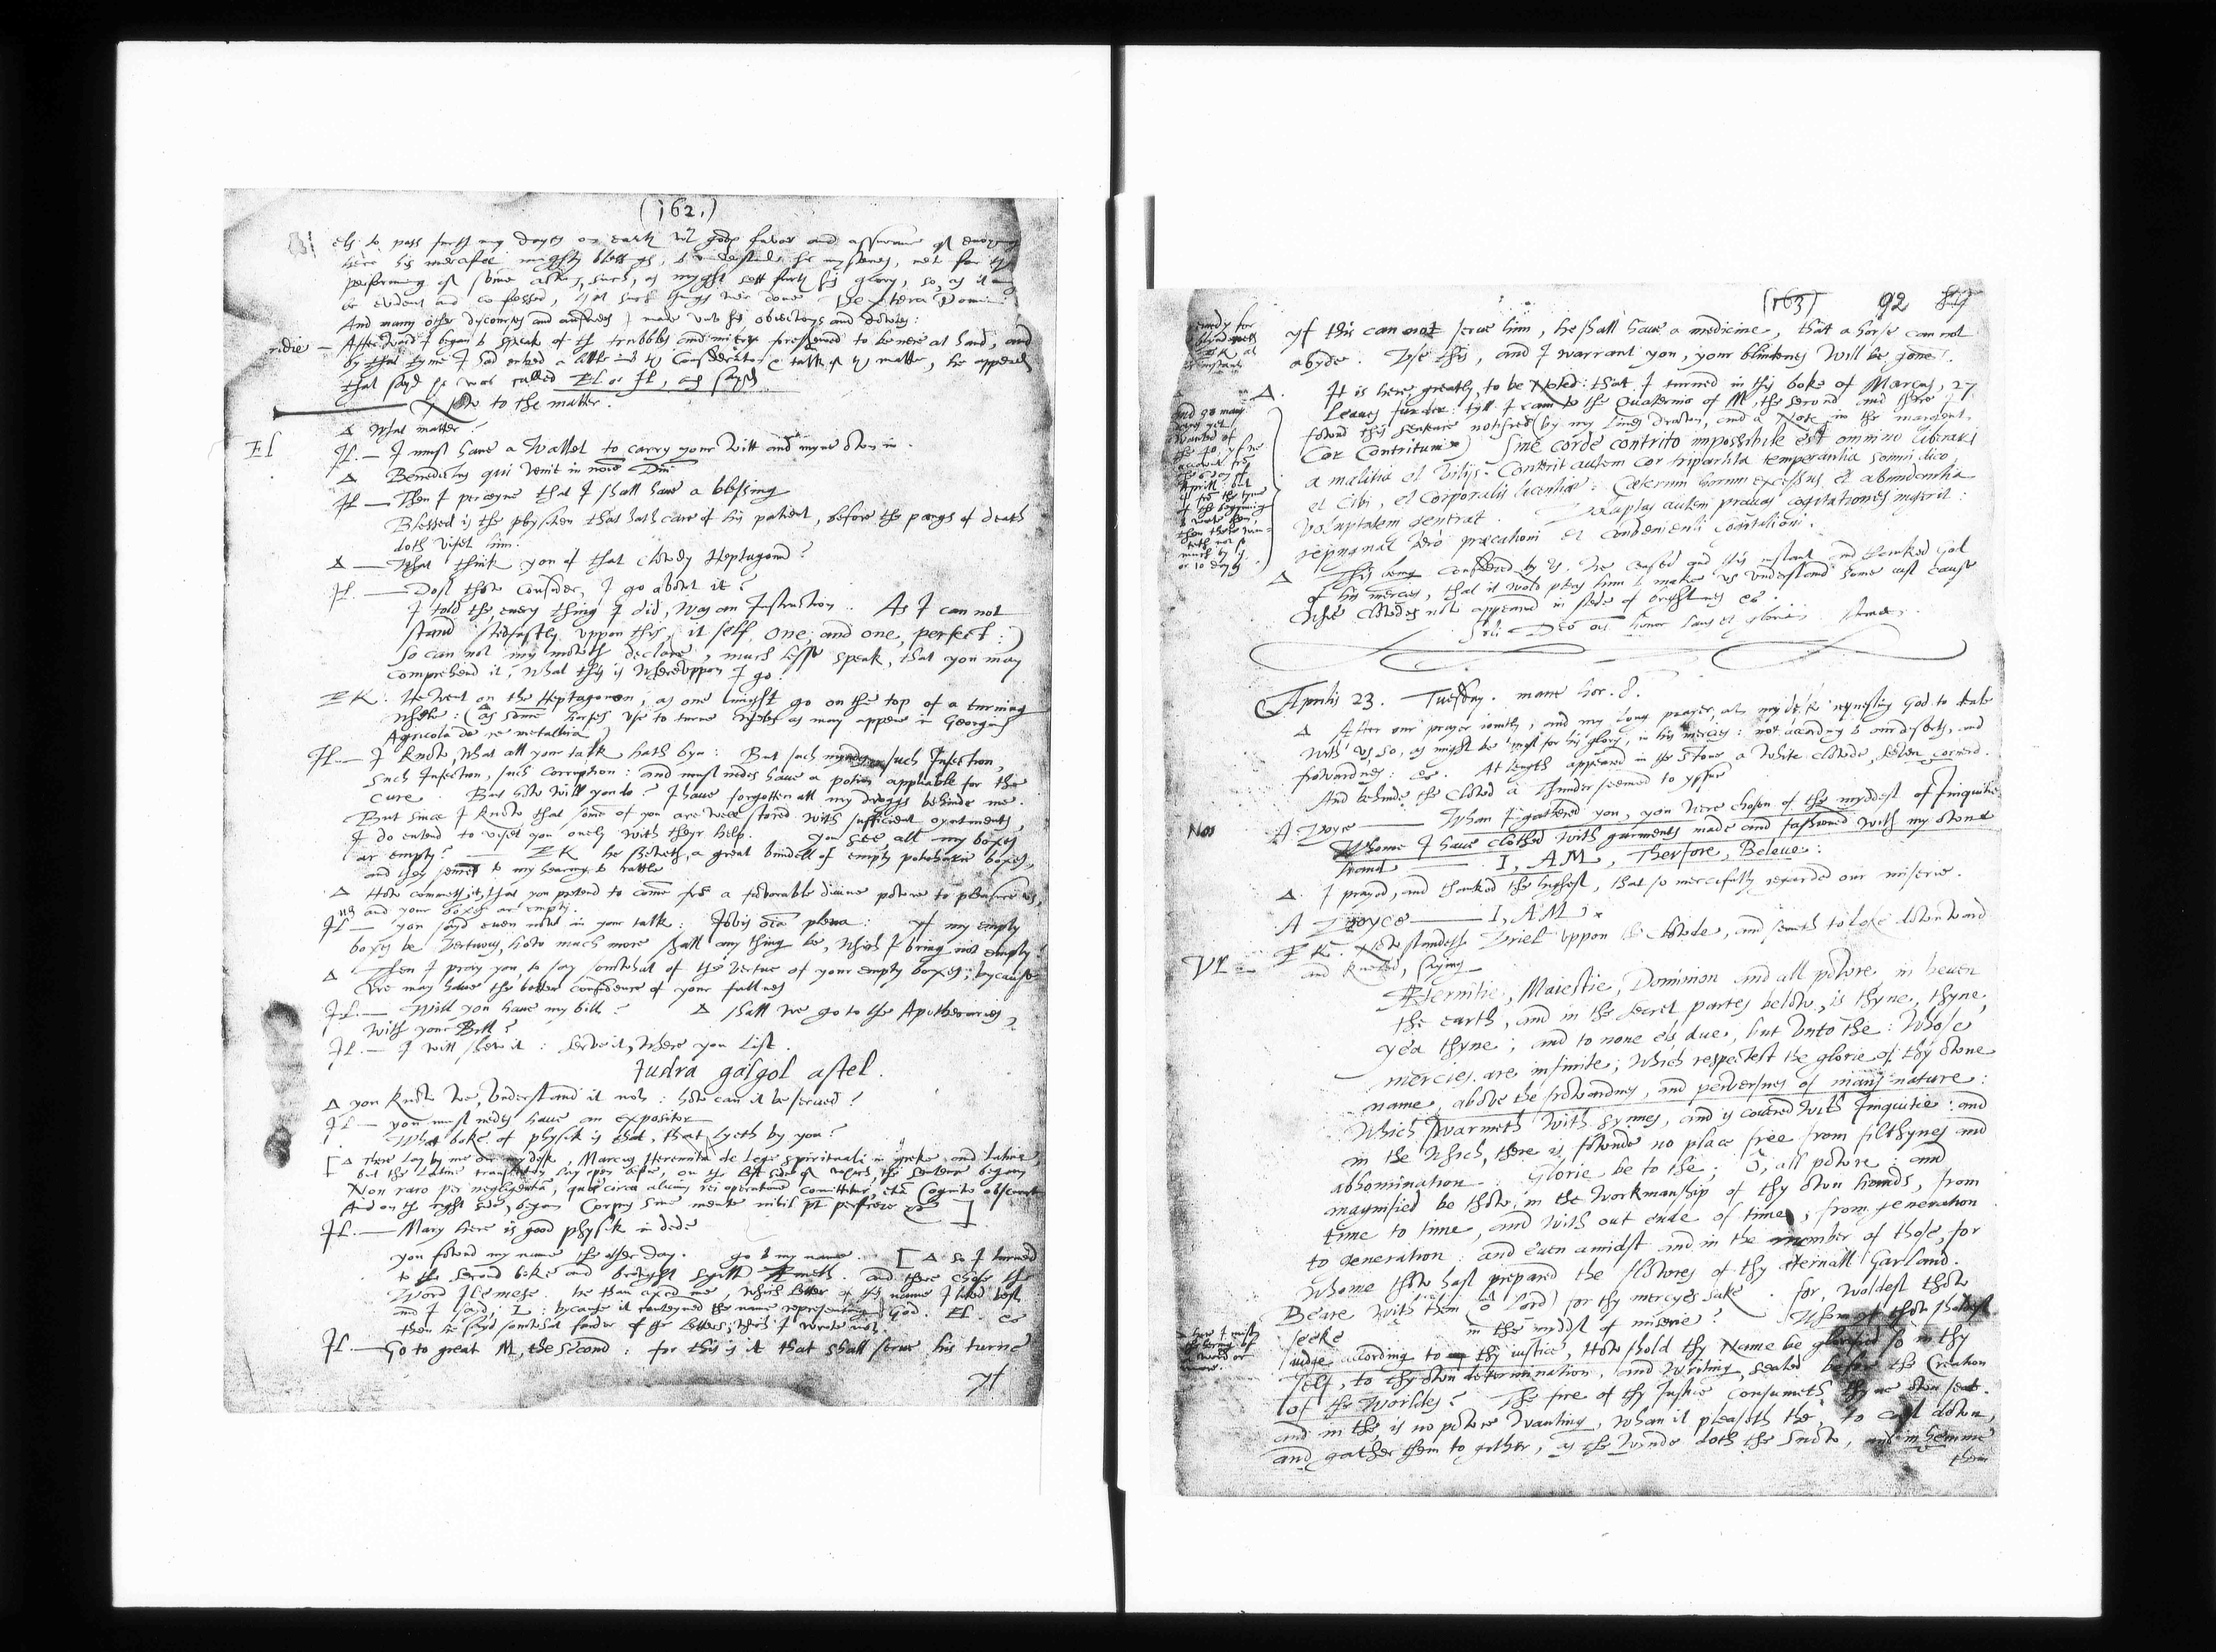 (162.)
els to pass furth my dayes on earth with gods favor and assurance of enioying
here his mercifull mighty blessings, to understand his mysteries, met for the
performing of some actes, such, as myght sett furth his glory, so, as it may
be evident and confessed, that such things wer done Dextera Domini.
And many other discourses and answers I made unto his obiections and dowtes:
Afterward I began to speak of the trubbles and misery foreshewed to be nere at hand, and
by that tyme I had entred a little into the Consideration & talk of the matter, he appered
that sayd he was called El or Il, and sayd
Now to the matter.
Δ What matter?
El
Il. — I must have a Wallet to carry your witt and myne own in.
Δ Benedictus qui venit in noīe Dni
Il — Then I perceyve that I shall have a blessing
Blessed is the physitien that hath care of his patient, before the pangs of death
doth viset him.
Δ — What think you of that clowdy Heptagonon?
Il. — Dost thow consider, I go about it?
I told the every thing I did, was an Instruction. As I can not
stand stedfastly uppon this, it self one, and one, perfect:)
So can not my mowth declare, much lesse speak, that you may
comprehend it, what this is wheruppon I go.
EK. He went on the Heptagonon, as one might go on the top of a turning
whele: (as some horses use to turne wheles as may appere in Georgius
Agricola de re metallica)
Il. — I know, what all your talk hath byn: But such mynds, such Infection,
such Infection, such corruption: and must nedes have a potion appliable for the
cure. But how will you do? I have forgotten all my droggs behinde me.
But since I know that some of you are well stored with sufficient oyntments,
I do entend to viset you onely with theyr help. You see, all my boxes
ar empty? — EK he sheweth, a great bundell of empty potekarie boxes,
and they semed to my hearing to rattle
Δ How commeth it, that you pretend to come from a favorable divine powre to pleasure us,
and your boxes ar empty.
Il — you sayd even now in your talk: Iovis oīa plena: yf my empty
boxes be vertuous, how much more shall any thing be, which I bring not empty?
Δ Then I pray you, to say somwhat of the vertue of your empty boxes; bycause
we may have the better confidence of your fullnes
Il. — Will you have my bill? Δ Shall we go to the Apothecaries
with your Bill?
Il. — I will shew it: serve it, where you list.
Iudra galgol astel.
Δ you know we, understand it not: how can it be served?
Il — you must nedes have an expositor
What boke of physik is that, that lyeth by you?
[Δ There lay by me on my desk, Marcus Heremita de Lege spirituali in greke and latine,
but the latine translation lay open before, on the left side of which this sentence began
Non raro per negligentia, quae circa alicuius rei operationē committitur, etiā Cognitio obscuratur
And on the right side, began Corpus sine mente nihil pt perficere &c ]
Il. — Mary here is good physik in dede
you fownd my name the other day. go to my name. [Δ So I turned
to the second boke and browght sigillū Æmeth. and there chose the
Word Ilemese. he than axed me, which letter of this name I liked best
and I sayd, L: bycause it conteyned the name representing God. El. &c
then he sayd somwhat farder of the letters, which I wrote not.
Il. — Go to great M, the second: for this is it that shall serve his turne
yf
(163) 92
yf this can not serve him, he shall have a medicine, that a horse can not
abyde. Use this, and I warrant you, your blindenes will be gone.
Δ. It is here greatly, to be Noted: that I turned in this boke of Marcus, 27
leaves furder: tyll I cam to the Quaternio of M, the second and there I
fownd this sentence notifyed (by my lines drawn, and a Note in the margent,
Cor Contritum) Sine corde contrito impossibile est omnino liberari
a malitia et vitijs. Conterit autem cor tripartita temperantia somni dico
et Cibi, et Corporalis licentiae: Caeterum horum excessus, et abundantia
voluptatem generat. Voluptas autem pravas cogitationes ingerit:
repugnat vero precationi et convenienti cogitationi.
Δ This being Considered by us. We ceased and this instant and thanked God
of his mercies, that it wold pleas him to make us understand some iust cause
why clowdes now appeared in stede of brightnes &c.
Soli Deo ois honor laus et gloria. Amen.
Aprilis 23. Tuesday. mane hor. 8.
Δ After our prayer iointly, and my long prayer, at my desk requesting God to deale
with us, so, as might be most for his glory, in his mercies: not according to our deserts, and
frowardnes: &c. At length appeared in the stone a white clowde, seven cornerd.
And behinde the clowd a Thunder seemed to yssue
Nos
A Voyce — Whan I gathered you, you were chosen of the myddest of Iniquitie
Whome I have clothed with garments made and fashioned with my owne
hand — I, AM, Therfore, Beleve:
Δ. I prayed, and thanked the highest, that so mercifully regarded our miserie.
A Voyce — I, AM.
EK. Now standeth Uriel uppon the clowde, and semeth to loke downward
and kneeled, saying
UR — Æternitie, Maiestie, Dominion and all powre, in heven
the earth, and in the secret partes below, is thyne, thyne,
yea thyne; and to none els due, but unto the: Whose
mercies are infinite; which respectest the glorie of thy owne
name, above the frowardnes, and perversnes of mans nature:
Which swarmeth with synnes, and is covered with Iniquitie: and
in the which, there is, fownde no place free from filthynes and
abhomination. Glorie be to the; O, all powre; and
magnified be thow, in the workmanship of thy own hands, from
time to time, and with out ende of time, from generation
to generation: and even amidst and in the number of those, for
Whome thow hast prepared the flowres of thy eternall Garland.
Beare with them (o Lord) for thy mercyes sake. For, woldest thow
seeke in the myddst of miserie? Whom yf thow sholdest
iudge according to thy iustice, How shold thy Name be glorified so in thy
self, to thy own determination, and Writing, sealed before the Creation
of the Worldes? The fire of thy Iustice consumeth thyne own seat.
and in the, is no powre wanting, whan it pleaseth the, to cast down,
and gather them to gether, as the winde doth the snow, and in hemme
them